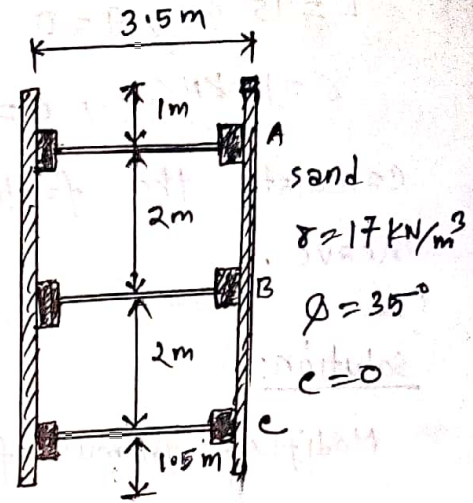 3.5m
1m
A
sand
2m
γ=17 KN/m³
B
Ø=35°
2m
c=0
C
1.5m